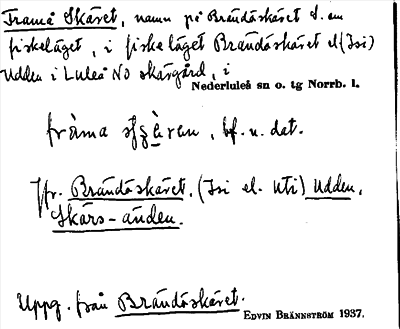 Framå Skäret, namn på Brändöskäret l. om
fiskeläget, i fiskeläget Brändöskäret el (Isi)
Udden i Luleå NO skärgård, i
Nederluleå sn o. tg Norrb. l.
fràma
bf. n. dat.
Jfr. Brändöskäret. (Isi el. uti) udden,
Skärs-anden.
Uppg. från Brändöskäret.
EDVIN BRÄNNSTRÖM 1937.